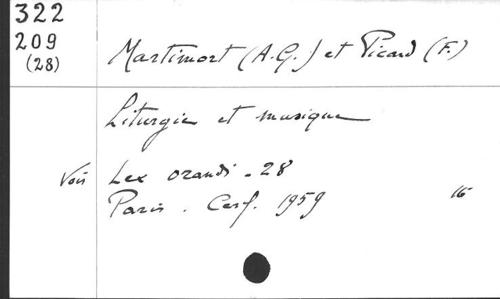 322
209
(28)
Martimort (A.G.) et Picard (F.)
Liturgie et musique
Voir Lex orandi - 28
Paris. Cerf. 1959 16